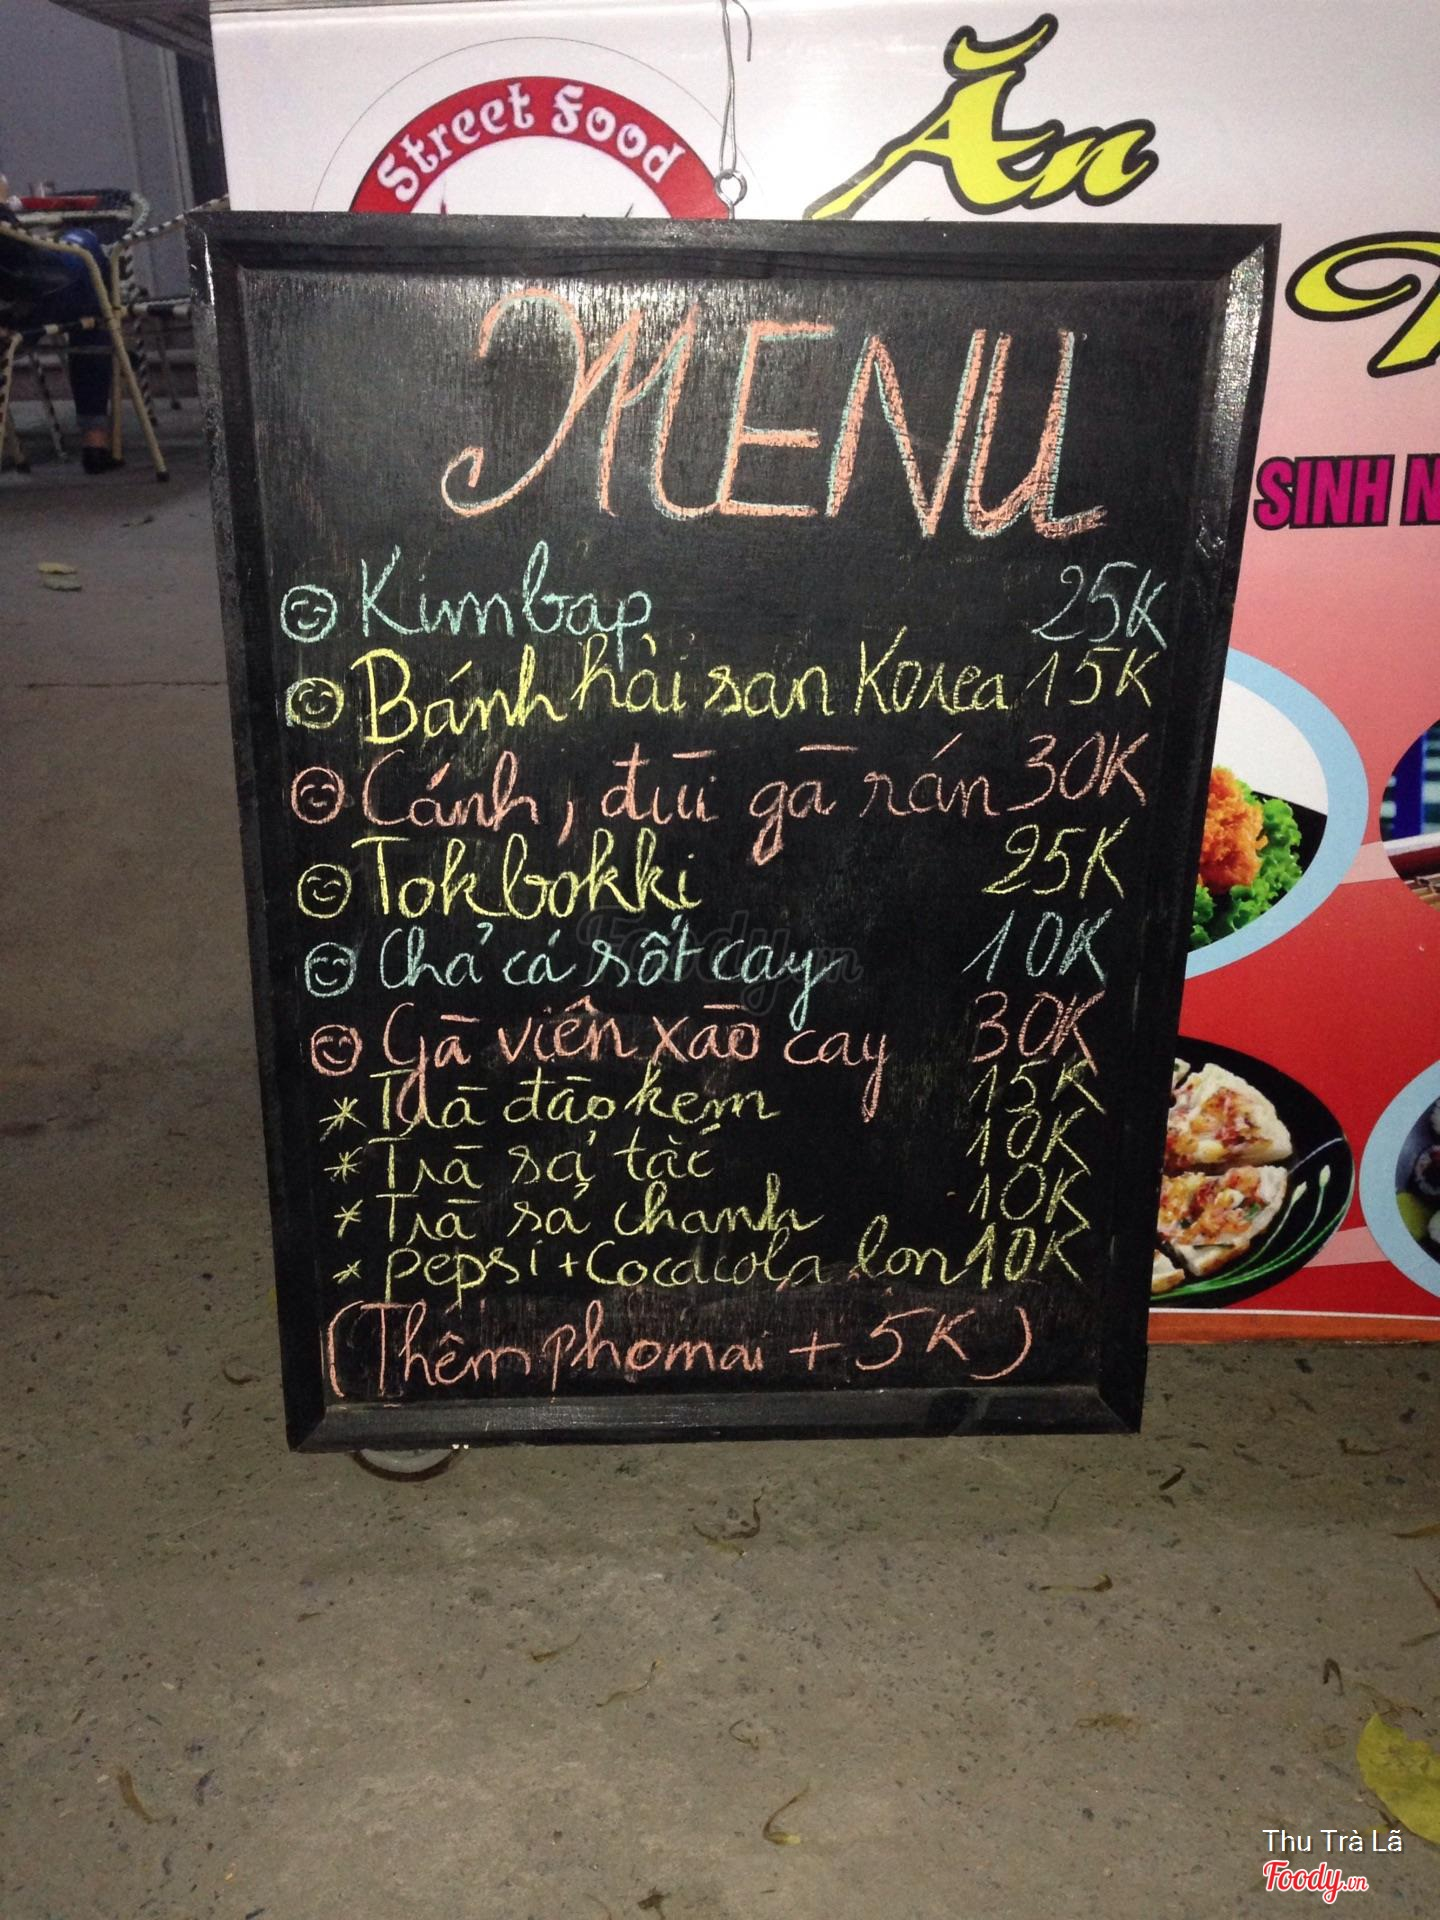 Street Food
Ăn
SINH N
MENU
Kimbap 25K
Bánh hải sản Korea 15K
Cánh, đùi gà rán 30K
Tokbokki 25K
Chả cá sốt cay 10K
Gà viên xào cay 30K
* Trà đào kem 15K
* Trà sả tắc 10K
* Trà sả chanh 10K
* pepsi + Cocacola lon 10K
(Thêm phomai + 5K)
Foody.vn
Thu Trà Lã
Foody.vn